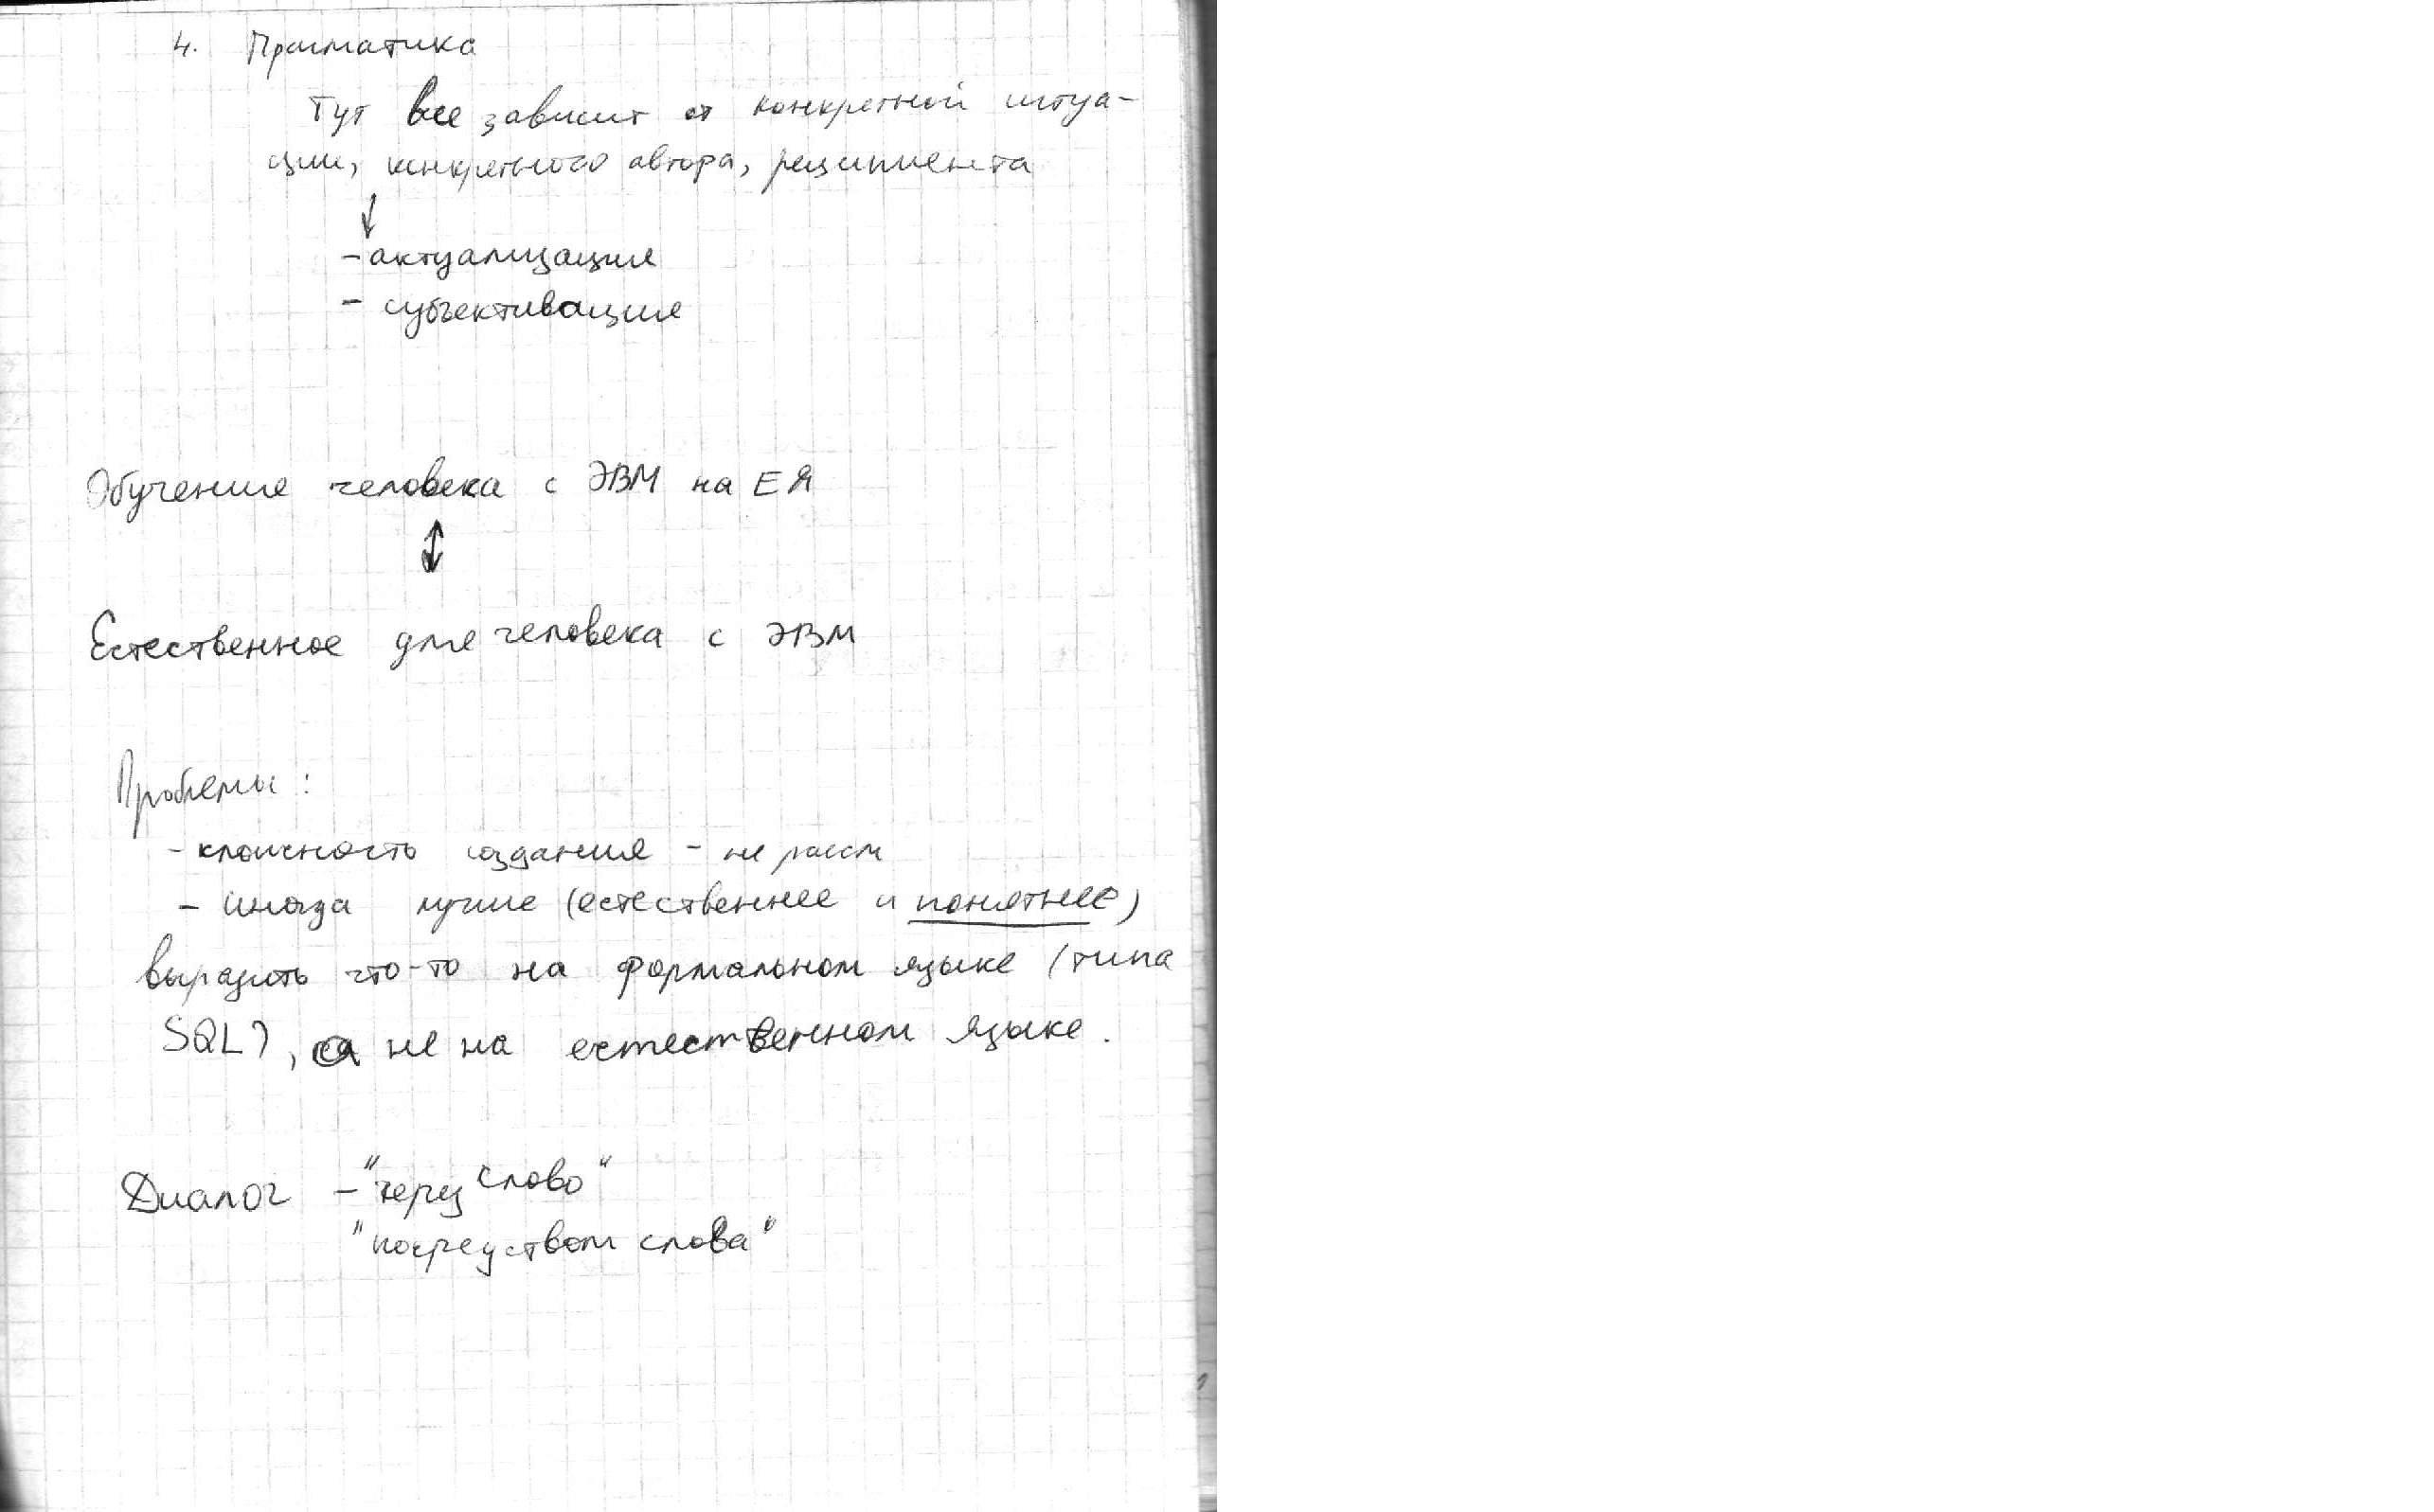 4. Прагматика
Тут все зависит от конкретной ситуа-
ции, конкретного автора, реципиента
↓
- актуализация
- субъективация
Обучение человека с ЭВМ на ЕЯ
↕
Естественное для человека с ЭВМ
Проблемы:
- сложность создания - не рассм
- иногда лучше (естественнее и понятнее)
выразить что-то на формальном языке (типа
SQL), а не на естественном языке.
Диалог - "через слово"
"посредством слова"